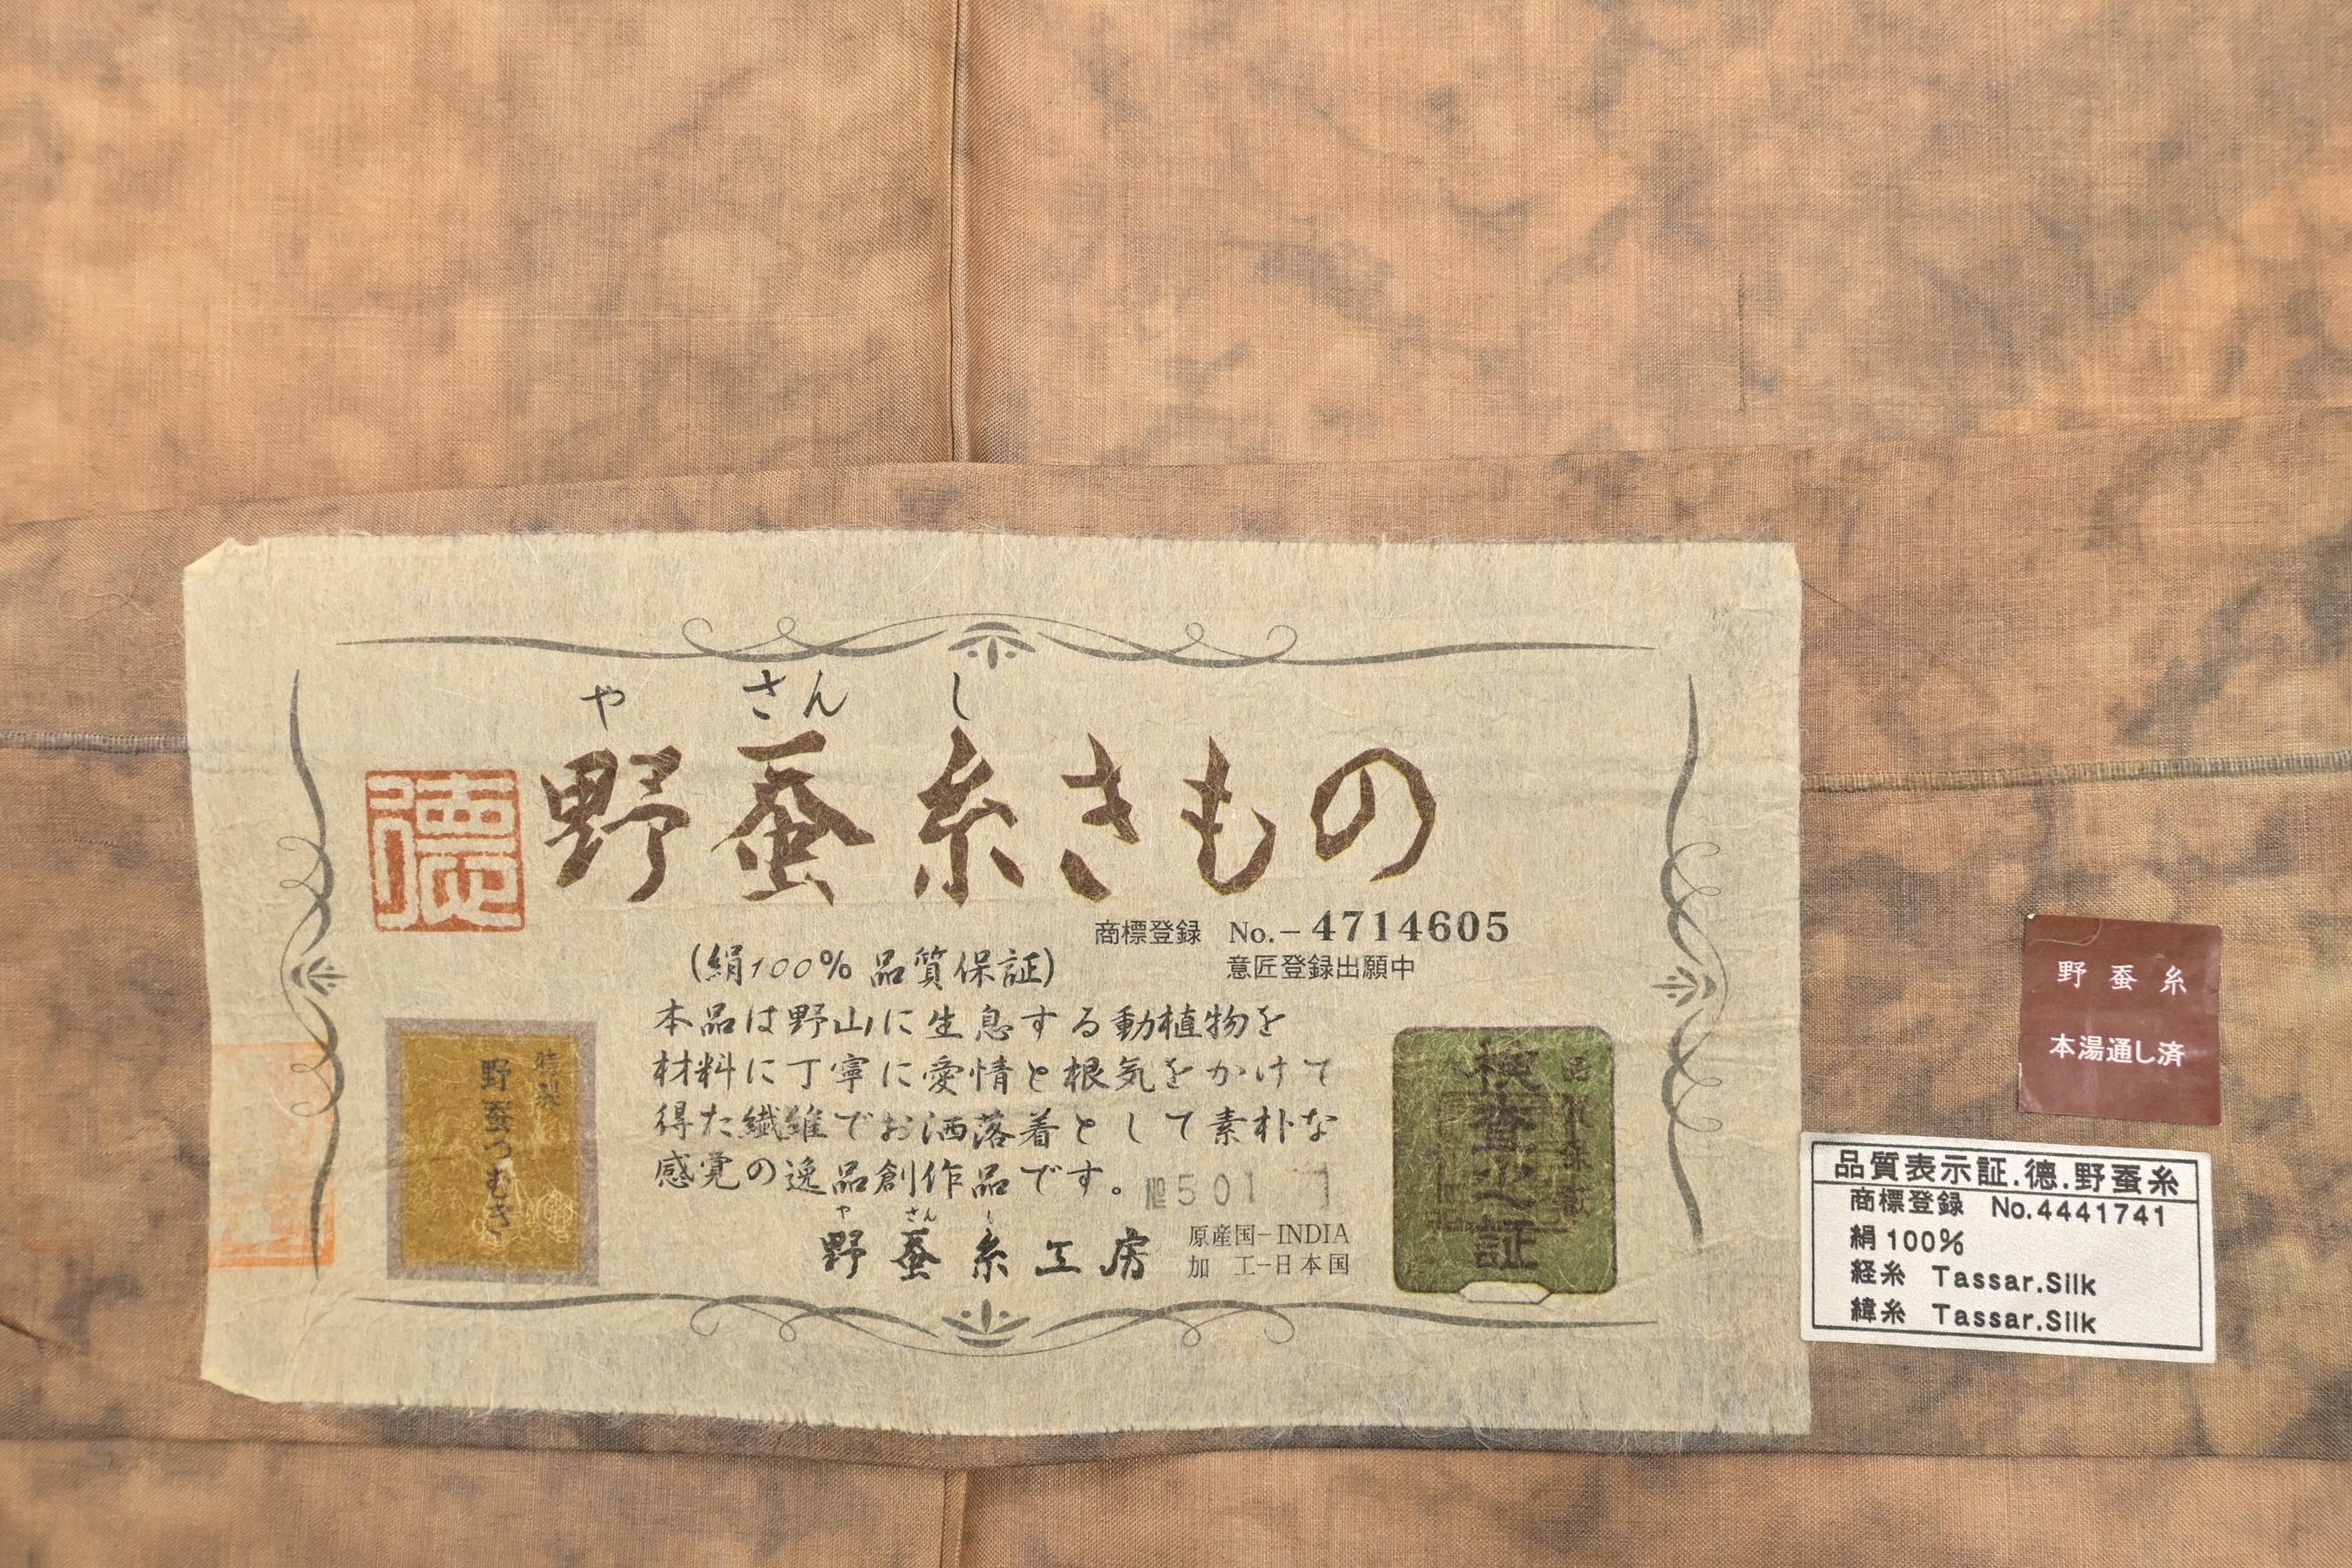 や さん し
德
野蚕糸きもの
商標登録 No.-4714605
意匠登録出願中
(絹100% 品質保証)
本品は野山に生息する動植物を
材料に丁寧に愛情と根気をかけて
得た繊維でお洒落着として素朴な
感覚の逸品創作品です。
№501
や さん し
野蚕糸工房
原産国-INDIA
加 工-日本国
特製
野蚕つむぎ
検査之証
野蚕糸
本湯通し済
品質表示証.德.野蚕糸
商標登録 No.4441741
絹100%
経糸 Tassar.Silk
緯糸 Tassar.Silk